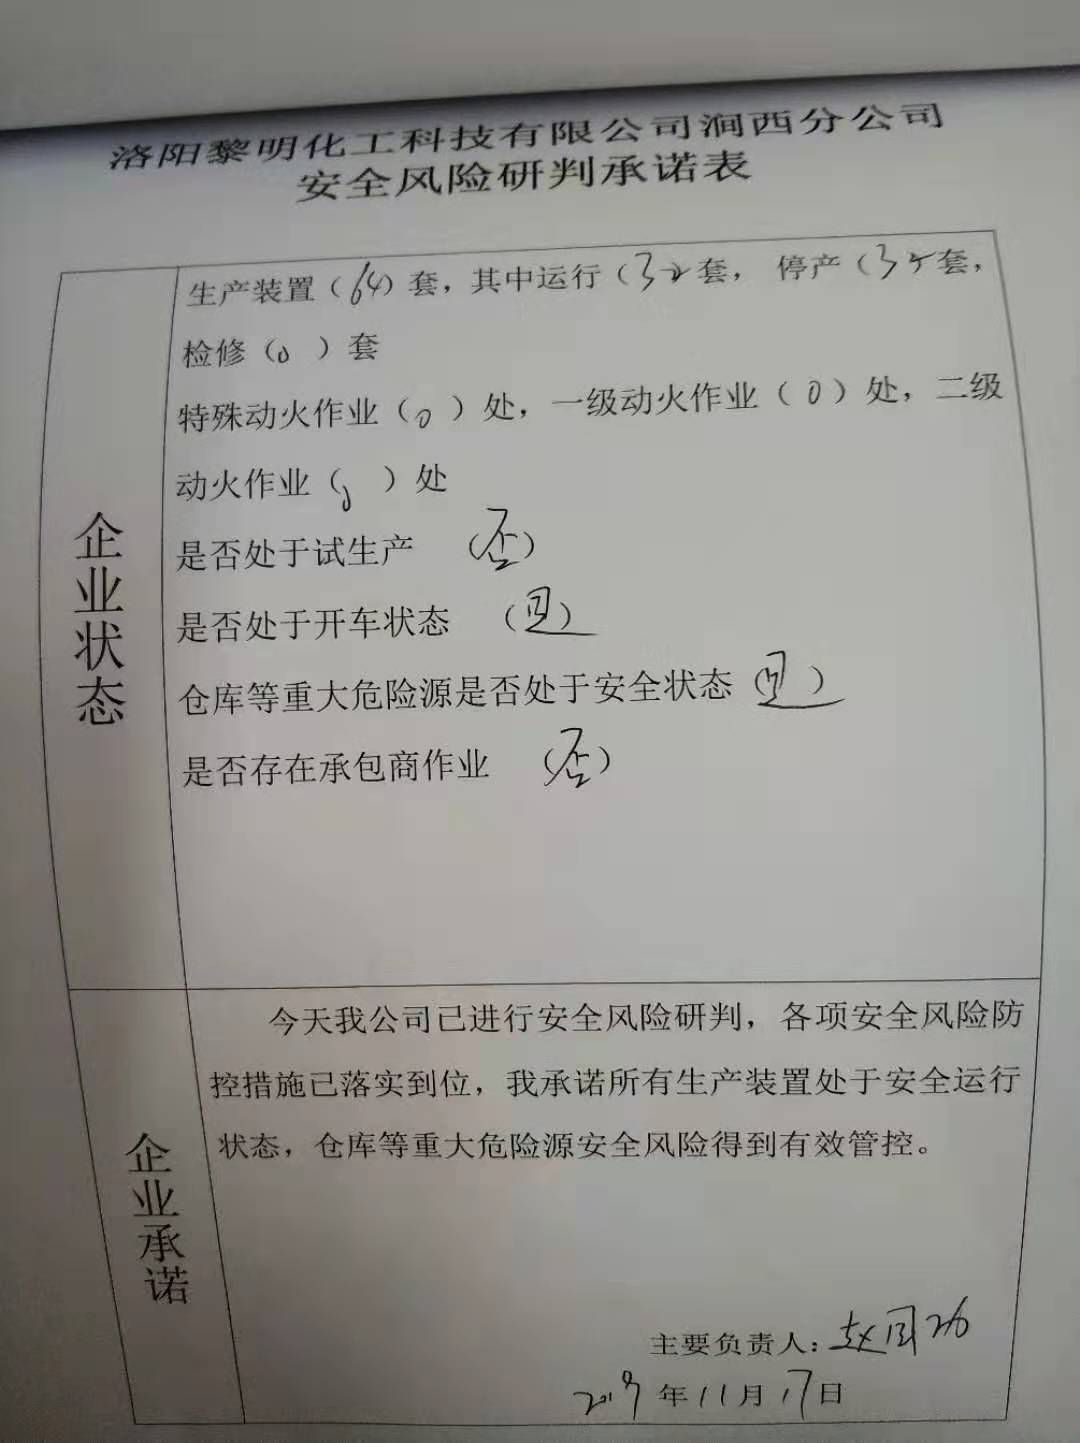 洛阳黎明化工科技有限公司涧西分公司
安全风险研判承诺表
企业状态
生产装置（64）套，其中运行（32套， 停产（3 套，
检修（0 ）套
特殊动火作业（0 ）处，一级动火作业（0）处，二级
动火作业（0 ）处
是否处于试生产 （否）
是否处于开车状态 （是）
仓库等重大危险源是否处于安全状态（是）
是否存在承包商作业 （否）
企业承诺
今天我公司已进行安全风险研判，各项安全风险防
控措施已落实到位，我承诺所有生产装置处于安全运行
状态，仓库等重大危险源安全风险得到有效管控。
主要负责人：赵国
2019年11月17日